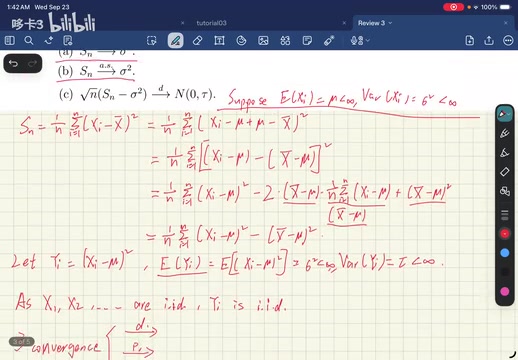 1:42 AM Wed Sep 23
100%
tutorial03
Review 3
哆卡3 bilibili
(a) Sₙ ⟶ σ²
(b) Sₙ —a.s.→ σ².
(c) √n(Sₙ − σ²) —d→ N(0, τ).
Suppose E(Xi) = μ < ∞, Var(Xi) = σ² < ∞
Sₙ = 1/n Σᵢ₌₁ⁿ (Xi − X̄)² = 1/n Σᵢ₌₁ⁿ (Xi − μ + μ − X̄)²
= 1/n Σᵢ₌₁ⁿ [(Xi − μ) − (X̄ − μ)]²
= 1/n Σᵢ₌₁ⁿ (Xi − μ)² − 2 · (X̄ − μ) · 1/n Σᵢ₌₁ⁿ (Xi − μ) + (X̄ − μ)²
(X̄ − μ)
= 1/n Σᵢ₌₁ⁿ (Xi − μ)² − (X̄ − μ)².
Let Yi = (Xi − μ)², E(Yi) = E[(Xi − μ)²] = σ² < ∞, Var(Yi) = τ < ∞.
As X₁, X₂, ...... are i.i.d, Yi is i.i.d.
3 of 5
convergence { d. →
P. →